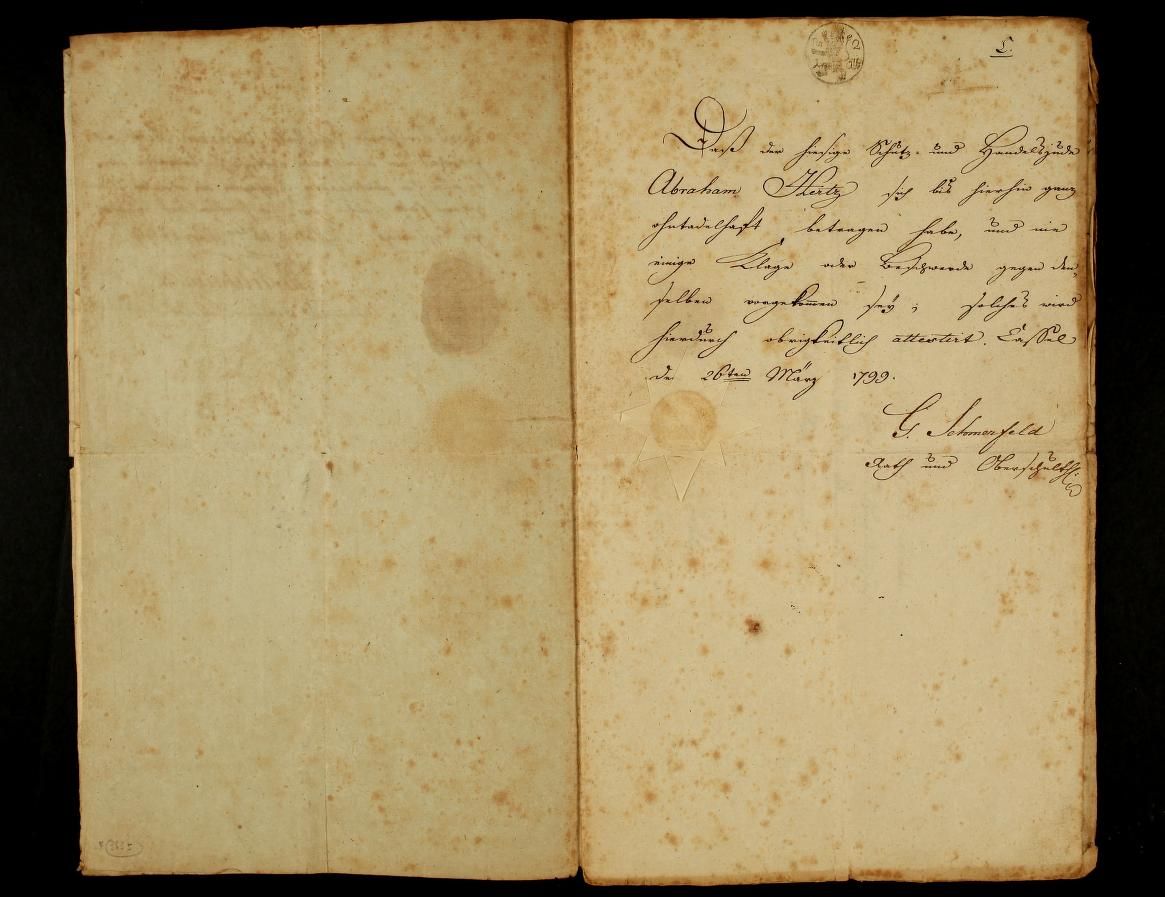 L.
Daß der hiesige Schutz- und Handelsjude
Abraham Hertz sich bis hierhin ganz
ohntadelhaft betragen habe, und nie
einige Klage oder Beschwerde gegen den-
selben vorgekommen sey; solches wird
hierdurch obrigkeitlich attestirt. Cassel
de 26ten März 1799.
G.
Rath und Oberschulth: